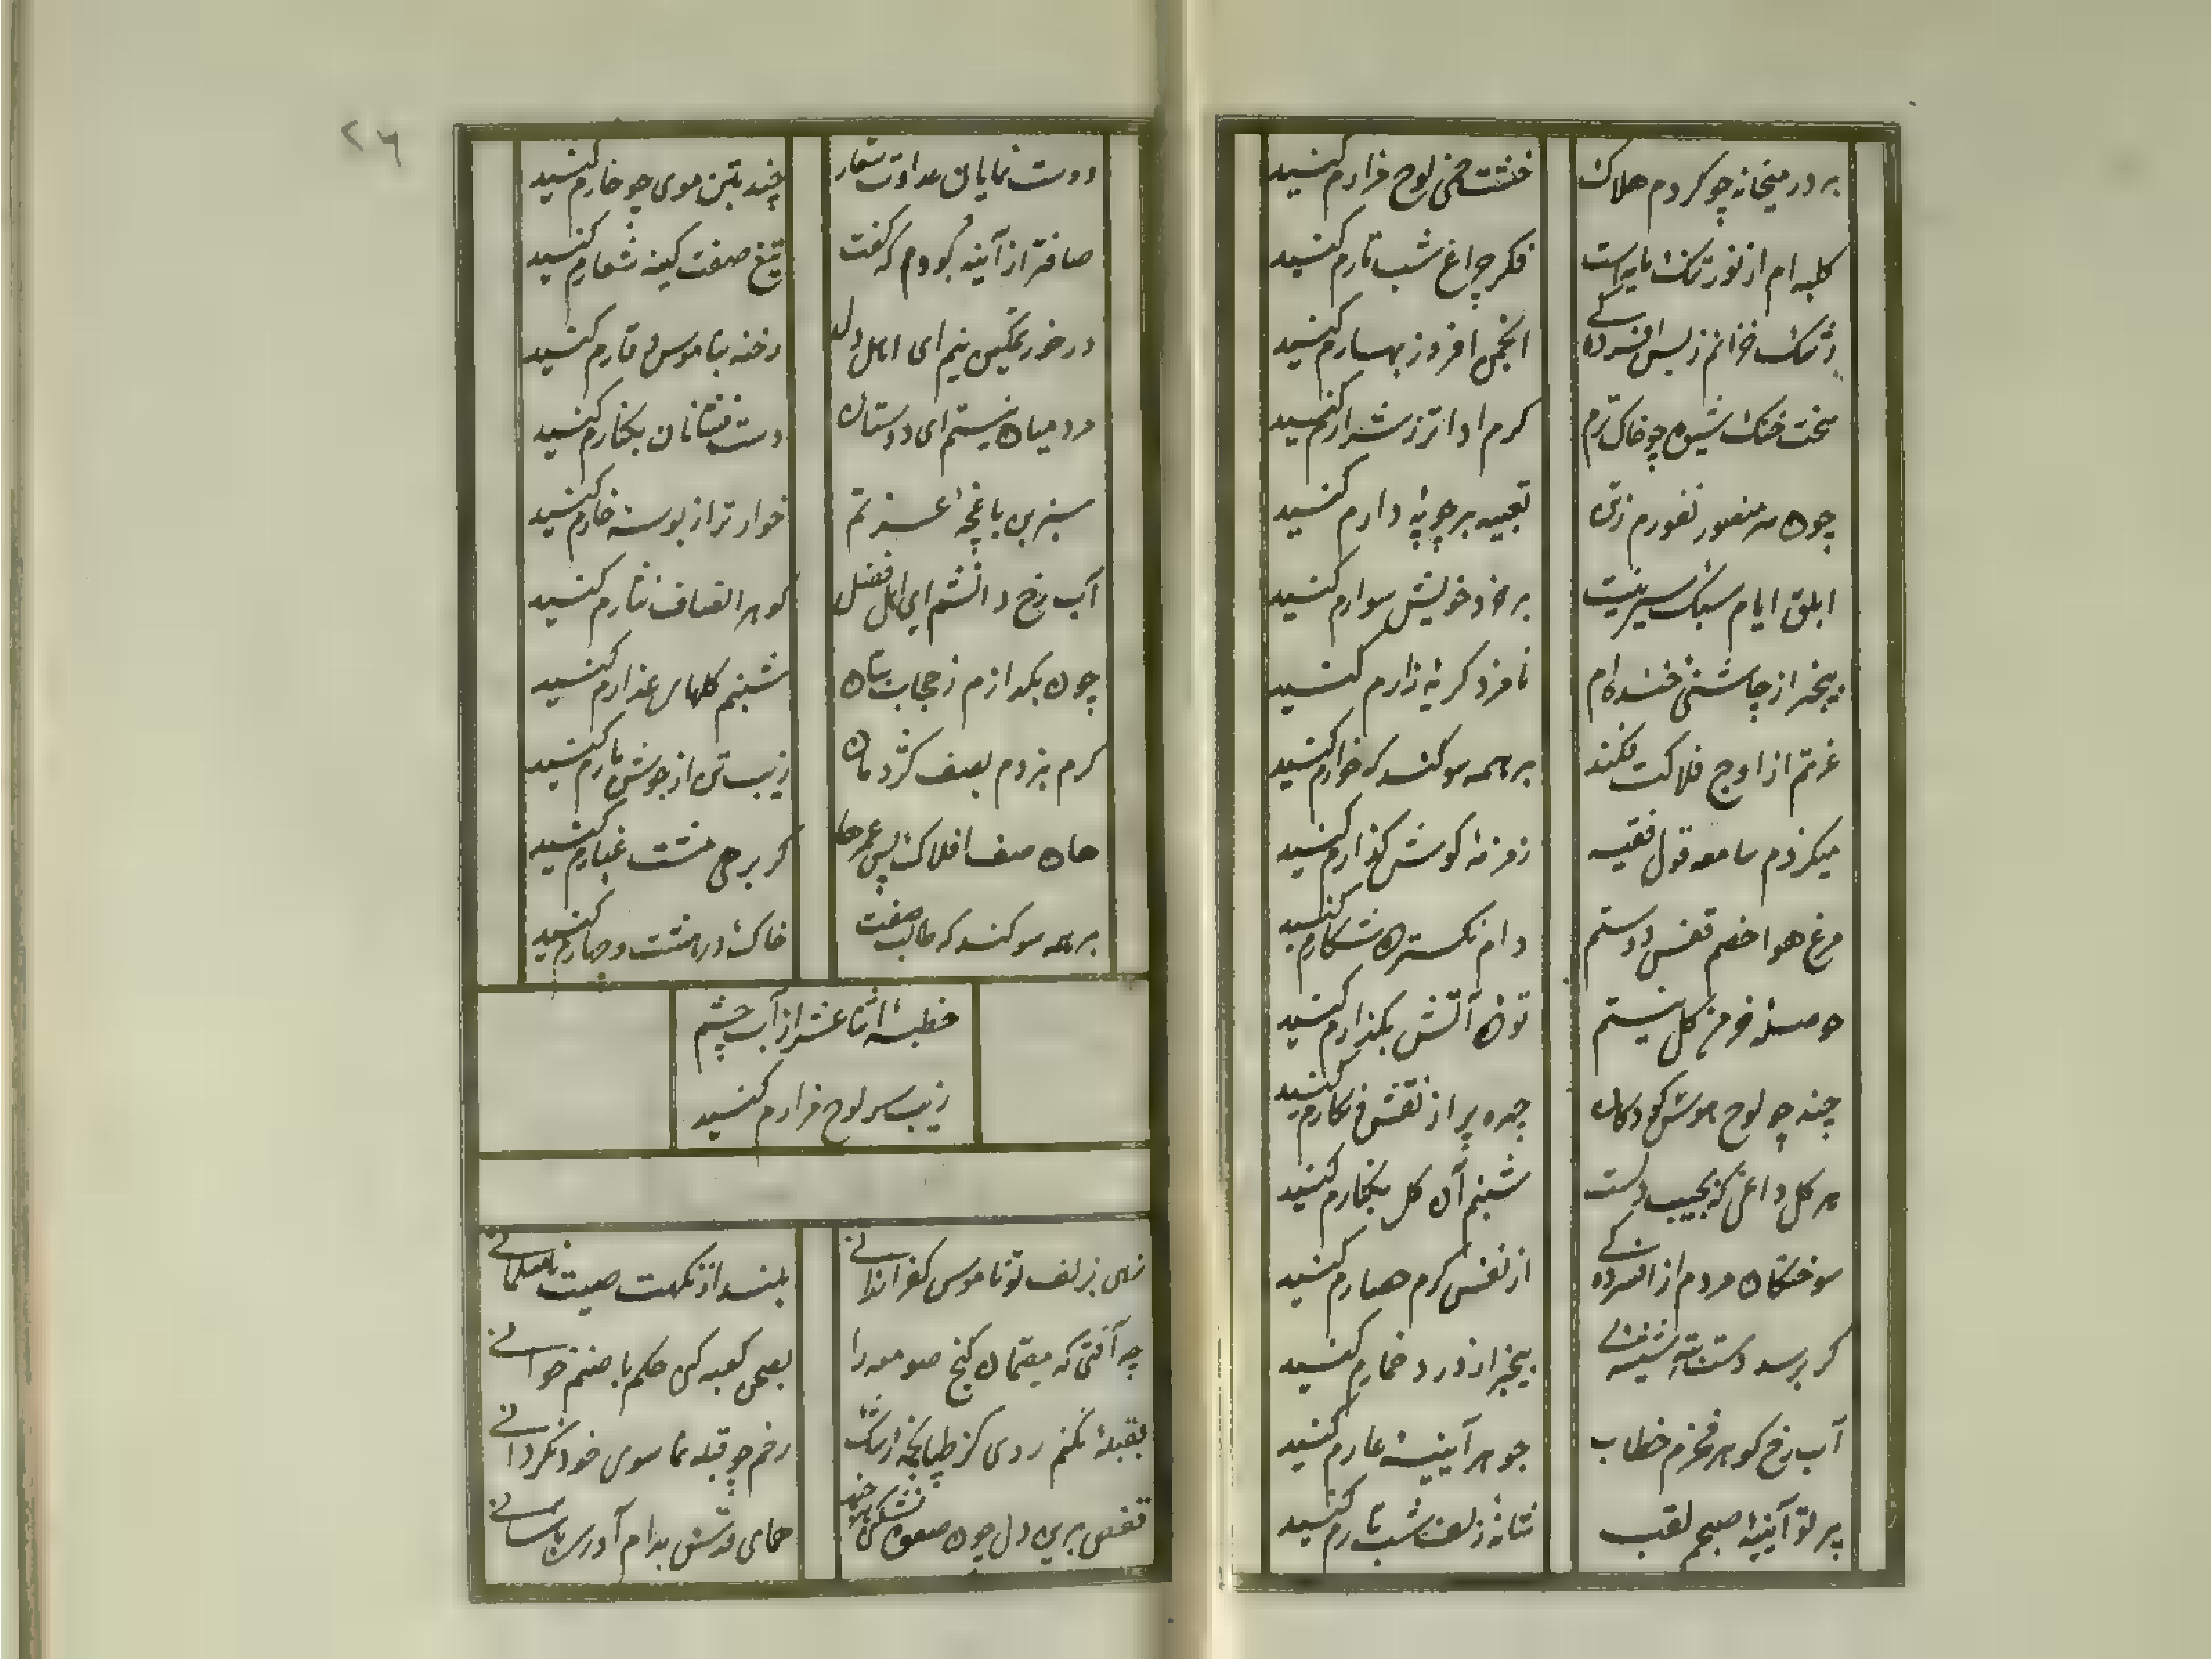 بر در میخانه چو کردم هلاک
خشت خم لوح مزارم کنید
کلبه ام از نور تنک مایه است
فکر چراغ شب تارم کنید
رشک خزانم ز بس افسردگی
انجمن افروز بهارم کنید
سخت خنک شیوه چو خاک ترم
کرم ادا تر ز شرارم کنید
چون سر منصور نفورم ز تن
تعبیه بر چوبه دارم کنید
ابلق ایام سبک سیر نیست
بر خود خویش سوارم کنید
بیخبر از چاشنی خنده ام
نامزد کریه زارم کنید
عزتم از اوج فلاکت فکند
بر همه سوکند که خوارم کنید
میکزدم سامعه قول فقیه
زمزمه کوش کذارم کنید
مرغ هوا خصم قفس دوستم
دام نکسترده شکارم کنید
حوصله خرمن کل نیستم
تون آتش بکذارم کنید
چند چو لوح هوش کودکان
چهره پر از نقش و نکارم کنید
هر کل داغی که بجیب دلست
شبنم آن کل بکنارم کنید
سوختکان مردم از افسردگی
از نفس کرم حصارم کنید
کر برسد دست به ته شیشه
بیخبر از درد خمارم کنید
آب رخ کوهر فخرم خطاب
جوهر آیینه عارم کنید
پرتو آیینه صبحم لقب
شانه زلف شب تارم کنید
٢٦
دوست نمایان عداوت شعار
چند بتن موی چو خارم کنید
صافتر از آینه بودم که کفت
تیغ صفت کینه شعارم کنید
در خور تمکین نیم ای اهل دل
رخنه بناموس وقارم کنید
مرد میان نیستم ای دوستان
دست فشانان بکنارم کنید
سبزترین باغچه عزتم
خوارتر از بوته خارم کنید
آب رخ دانشم ای اهل فضل
کوهر انصاف نثارم کنید
چون بکدازم ز حجاب بتان
شبنم کلهای عذارم کنید
کرم نبردم بصف کژدمان
زیب تن از جوشن مارم کنید
هان صف افلاک پس عمرها
کر بر می مشت غبارم کنید
بر همه سوکند که طالب صفت
خاک در هشت و چهارم کنید
خطبه اثنا عشر از آب چشم
زیب سر لوح مزارم کنید
زهی بزلف تو ناموس کفر ارزانی
بلند از نکهت صیت نامسلمانی
چه آفتی که مقیمان کنج صومعه را
بصحن کعبه کنی حکم با صنم خوانی
بقبله نکنم روی کز طپانچه رشک
رخم چو قبله نما سوی خود نکردانی
قفص برین دل چون صعوه نشکنی هر چند
همای قدسش بدام آوری بآسانی